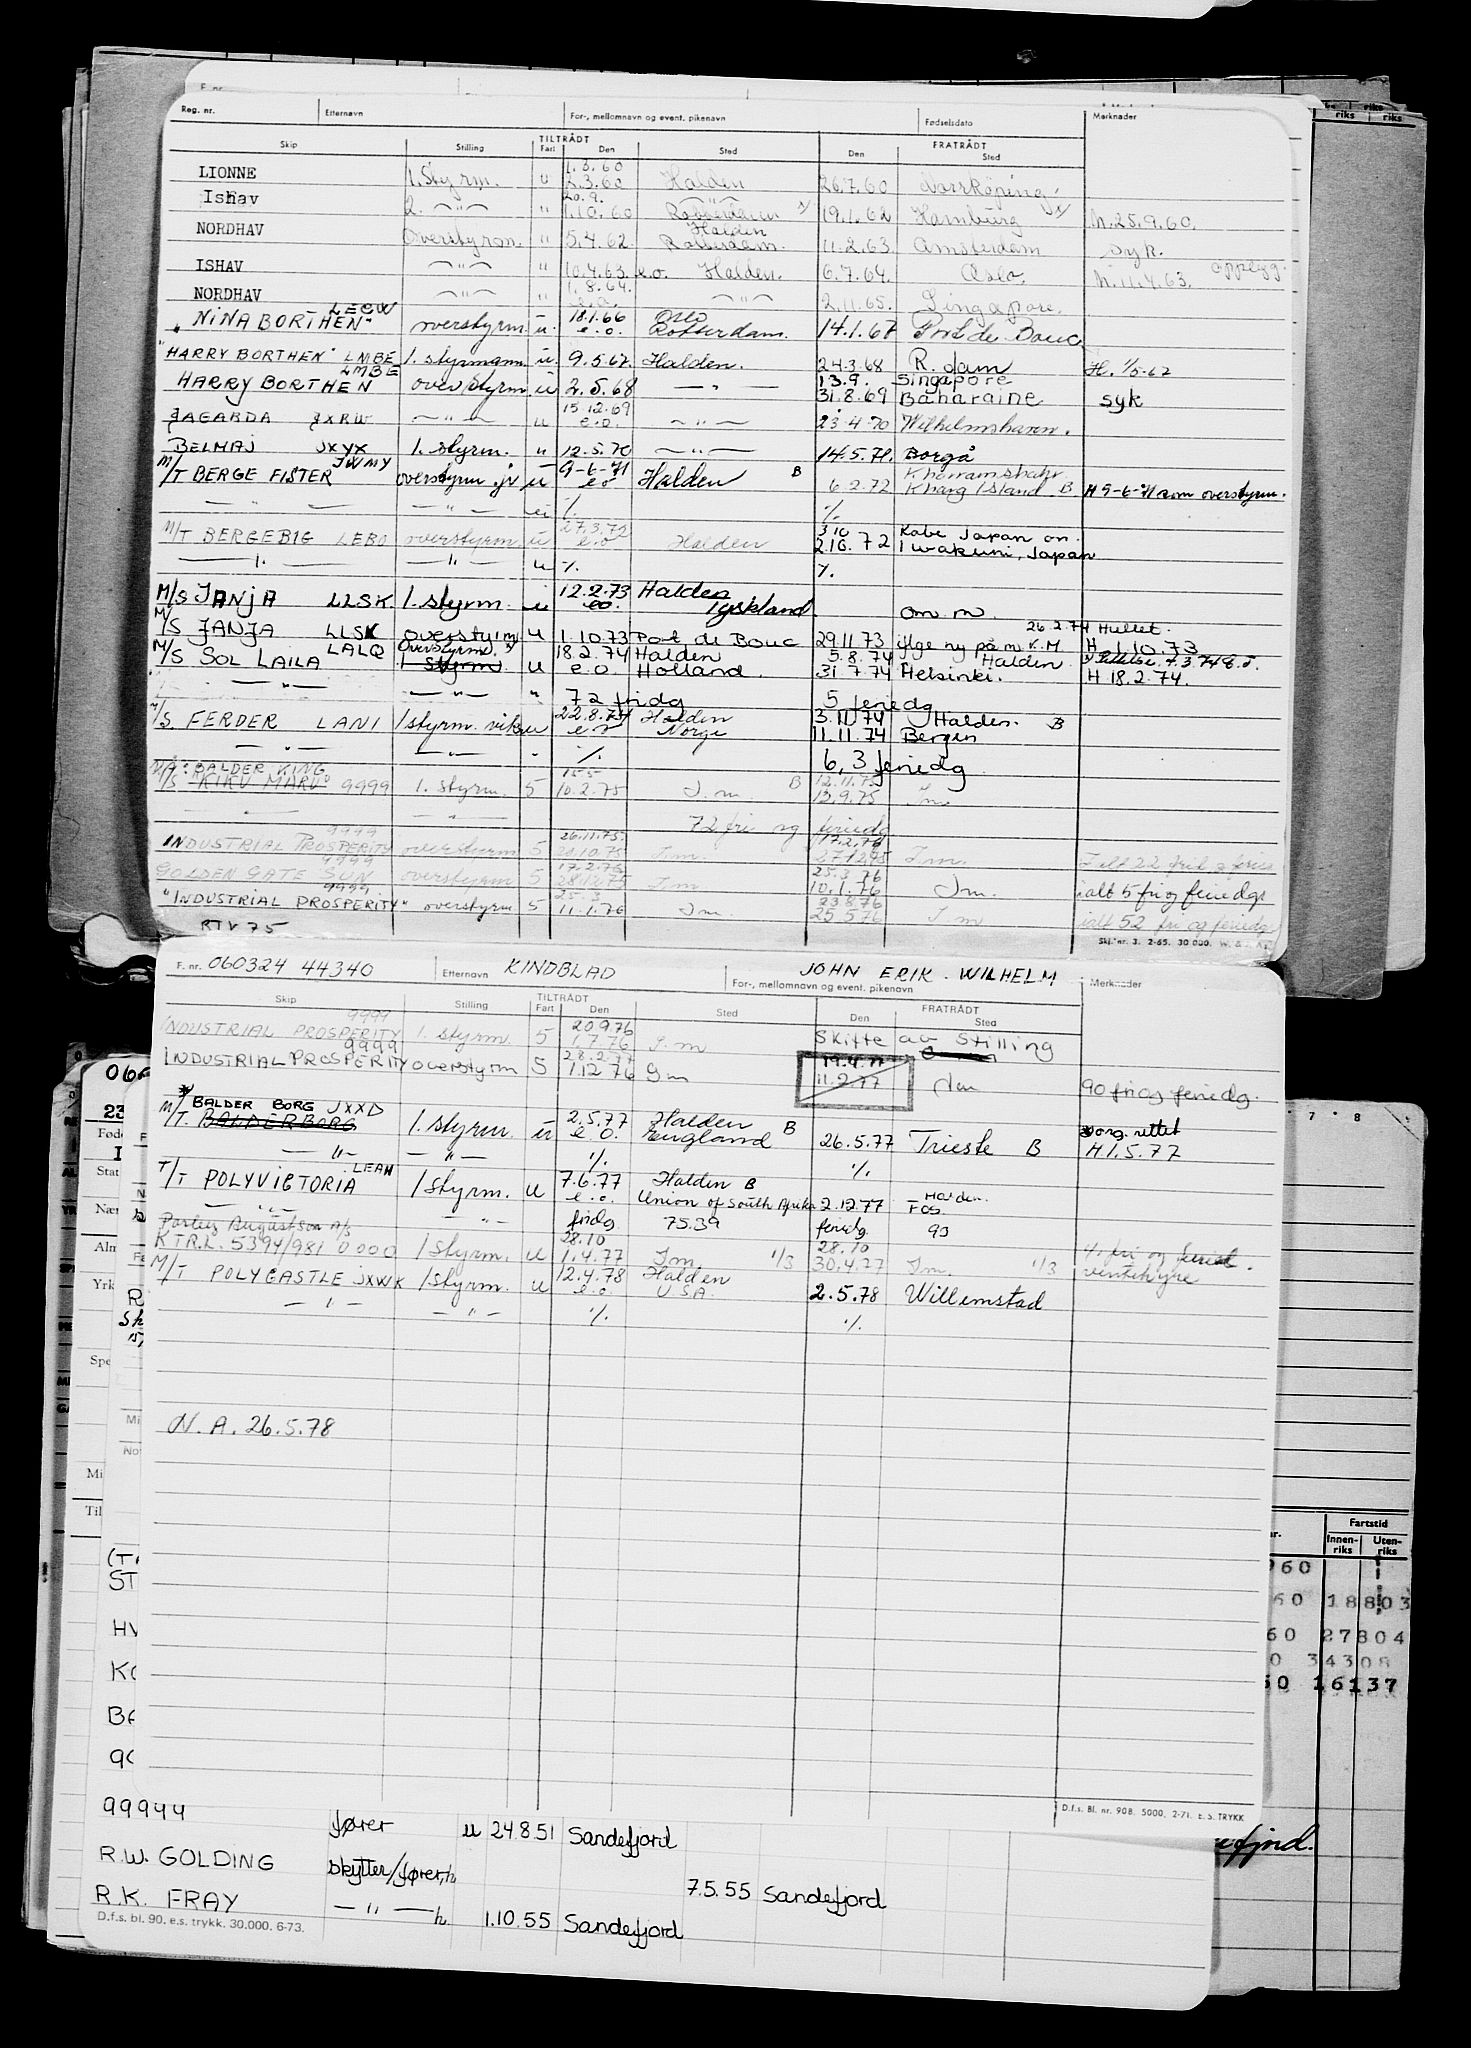 Reg. nr. Etternavn For-, mellomnavn og event. pikenavn Fødselsdato Merknader
Skip Stilling TILTRÅDT Fart Den Sted FRATRÅDT Den Sted
LIONNE 1. Styrm. u 1.3.60 2.3.60 Halden 26.7.60 Norrköping
Ishav 2. —"— " 20.9. 1.10.60 —"— Rotterdam 19.1.62 Hamburg M. 25.9.60.
NORDHAV Overstyrm. " 5.4.62. Halden Rotterdam. 11.2.63. Amsterdam syk.
ISHAV —"— " 10.4.63. e.o. Halden. 6.7.64. Oslo. M. 11.4.63. opplegg.
NORDHAV —"— " 1.8.64. e.o. —"— 2.11.65. Singapore.
"NINA BORTHEN" LECW overstyrm. u. 18.1.66 e.o. Oslo Rotterdam. 14.1.67 Port de Bouc
"HARRY BORTHEN" LMBE 1. styrmann u. 9.5.67. Halden. 24.3.68 R.dam H. 1/5-67
HARRY BORTHEN LMBE overstyrm u 2.5.68 —"— 13.9. 31.8.69 Singapore Baharaine syk
JAGARDA JXRW —"— u 15.12.69 e.o. —"— 23.4.70 Wilhelmshaven.
BELMAJ JXYX 1. styrm. u 12.5.70 —"— 14.5.71. Borgå
M/T BERGE FISTER JWMY overstyrm. jr u 9-6-71 eo Halden B 6.2.72 Khorramshahr Kharg Island B H 9-6-71 som overstyrm.
—"— —"— u ./. ./.
M/T BERGEBIG LEBO overstyrm u 27.3.72 e.o Halden 3.10 2.10.72 Kobe Japan on. Iwakuni, Japan
—"— —"— u ./. ./.
M/S JANJA LLSK. 1. styrm. u 12.2.73 eo. Halden Tyskland om m
M/S JANJA LLSK overstyrm u 1.10.73 Port de Bouc 29.11.73 iflge ny på m. K.M 26.2.74 Hullet. H. 1.10.73
M/S SOL LAILA LALQ Overstyrm. 1 styrm. u 18.2.74 e.o. Halden Holland. 5.8.74 31.7.74 Halden Helsinki. H 18.2.74.
—"— —"— " 72 fridg 5 feriedg
M/S FERDER LANI 1 styrm. vik u 22.8.74 e.o Halden Norge 3.11.74 11.11.74 Halden. B Bergen
—"— —"— - ./. 6,3 feriedg
M/S: BALDER KING
M/S "KIKU MARU" 9999 1. styrm. 5 15.5 10.2.75 I.m. B 12.11.75 13.9.75 I.m.
—"— —"— 72 fri og feriedg
INDUSTRIAL PROSPERITY 9999 overstyrm 5 26.11.75 20.10.75 I.m. 17.2.76 27.12.75 I.m. I alt 22 fri og ferie
GOLDEN GATE SUN 9999 overstyrm 5 17.2.76 28.12.75 I.m 25.3.76 10.1.76 I.m. ialt 5 fri og feriedgr
"INDUSTRIAL PROSPERITY" 9999 overstyrm. 5 25.3 11.1.76 I.m 23.8.76 25.5.76 I.m ialt 52 fri og feriedgr
RTV 75
Skj. nr. 3. 2-65. 30 000. W. &
F. nr. 060324 44340 Etternavn KINDBLAD JOHN ERIK WILHELM
For-, mellomnavn og event. pikenavn Merknader
Skip Stilling TILTRÅDT Fart Den Sted FRATRÅDT Den Sted
INDUSTRIAL PROSPERITY 9999 1. styrm. 5 20.9.76 1.7.76 I.m Skifte av Stilling
INDUSTRIAL PROSPERITY 9999 overstyrm 5 28.2.77 1.12.76 I m 19.4.77 11.2.77 I m 90 fri og feriedg.
M/T * BALDER BORG JXXD
M/T. BALDERBORG 1. styrm. u 2.5.77 e.o. Halden England B 26.5.77 Trieste B * org. rettet H 1.5.77
—"— —"— ./. ./.
T/T POLYVICTORIA LEAH 1 styrm. u 7.6.77 e.o. Halden B Union of South Afrika 2.12.77 Halden. FOS
—"— —"— fridg. 75.39 feriedg. 93
KTR.L. 5394/981 0000 1 styrm. u 28.10 1.4.77 I.m. 1/3 28.10 30.4.77 I.m. 1/3 4. fri og feried. ventehyre
M/T POLYCASTLE JXWK 1 styrm. u 12.4.78 e.o. Halden USA. 2.5.78 Willemstad
—"— —"— ./. ./.
N.A. 26.5.78
Fartstid
Innen-riks Uten-riks
960
60 18803
60 27804
0 34308
60 16137
D.f.s. Bl. nr. 90B. 5000. 2-71. E. S. TRYKK
99944 fører u 24.8.51 Sandefjord
R.W. GOLDING skytter/fører, h 7.5.55 Sandefjord
R.K. FRAY —"— h. 1.10.55 Sandefjord
D.f.s. bl. 90. e.s. trykk. 30.000. 6-73.